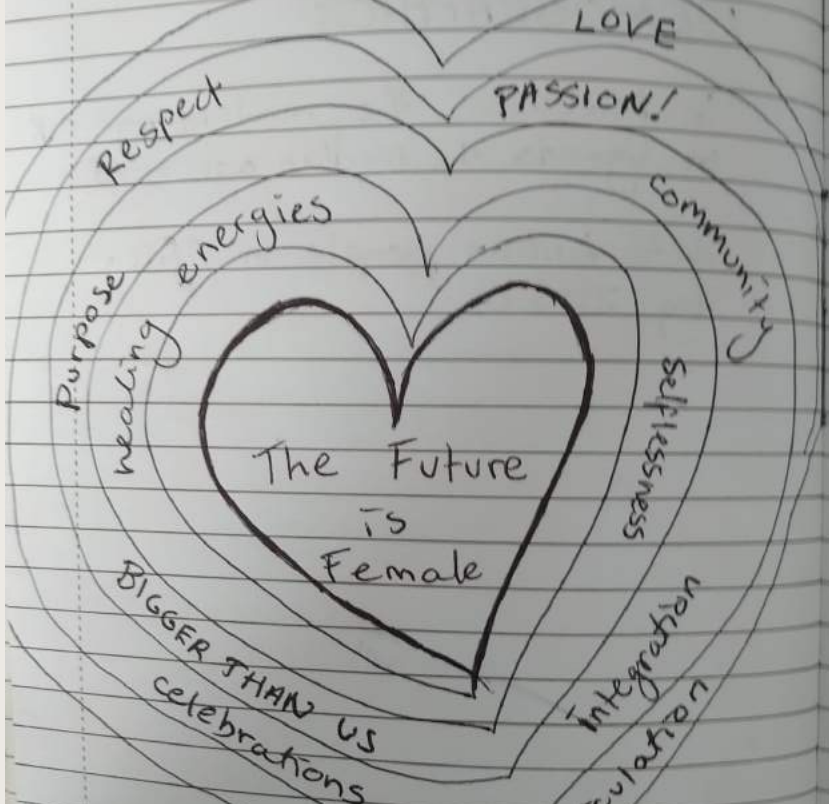 LOVE
PASSION!
Respect
community
healing energies
Purpose
selflessness
The Future
is
Female
BIGGER THAN US
celebrations
integration